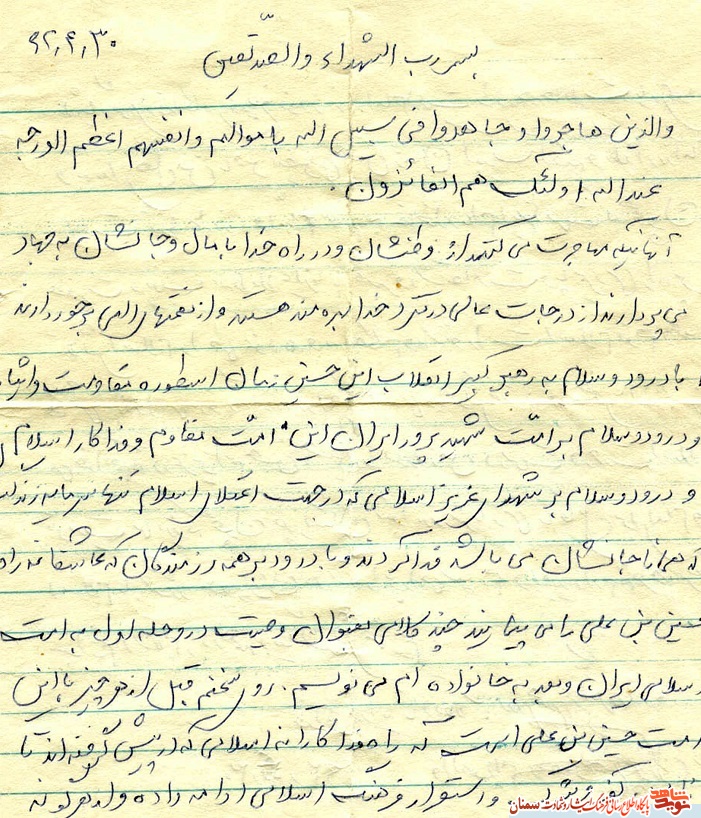 ۶۲,۴,۳۰
بسم رب الشهداء والصدّیقین
والذین هاجروا و جاهدوا فی سبیل الله باموالهم وانفسهم اعظم الدرجه
عندالله اولئک هم الفائزون.
آنهائیکه مهاجرت می کنند از وطنشان و در راه خدا با مال و جانشان به جهاد
می پردازند از درجات عالی در نزد خدا بهره مند هستند و از نعمتهای الهی برخوردارند
با درود و سلام به رهبر کبیر انقلاب این خمینی زمان اسطوره مقاومت و ایثار
و درود و سلام بر امّت شهید پرور ایران این امّت مقاوم و فداکار اسلام
و درود و سلام بر شهدای عزیز اسلامی که در جهت اعتلای اسلام تنها سرمایه زندگی
که همانا جانشان می باشد فدا کردند و با درود بر همه رزمندگان که عاشقانه راه
حسین بن علی را می پیمایند چند کلامی بعنوان وصیت در وحله اول به امت
اسلامی ایران و بعد به خانواده ام می نویسم. روی سخنم قبل از هر چیز با این
امت حسین بن علی است که راه فداکارانه اسلامی که در پیش گرفته اند تا
کفر و استقرار فرهنگ اسلامی ادامه داده و از هر گونه
نوید شاهد
پایگاه اطلاع رسانی فرهنگ ایثار و شهادت سمنان